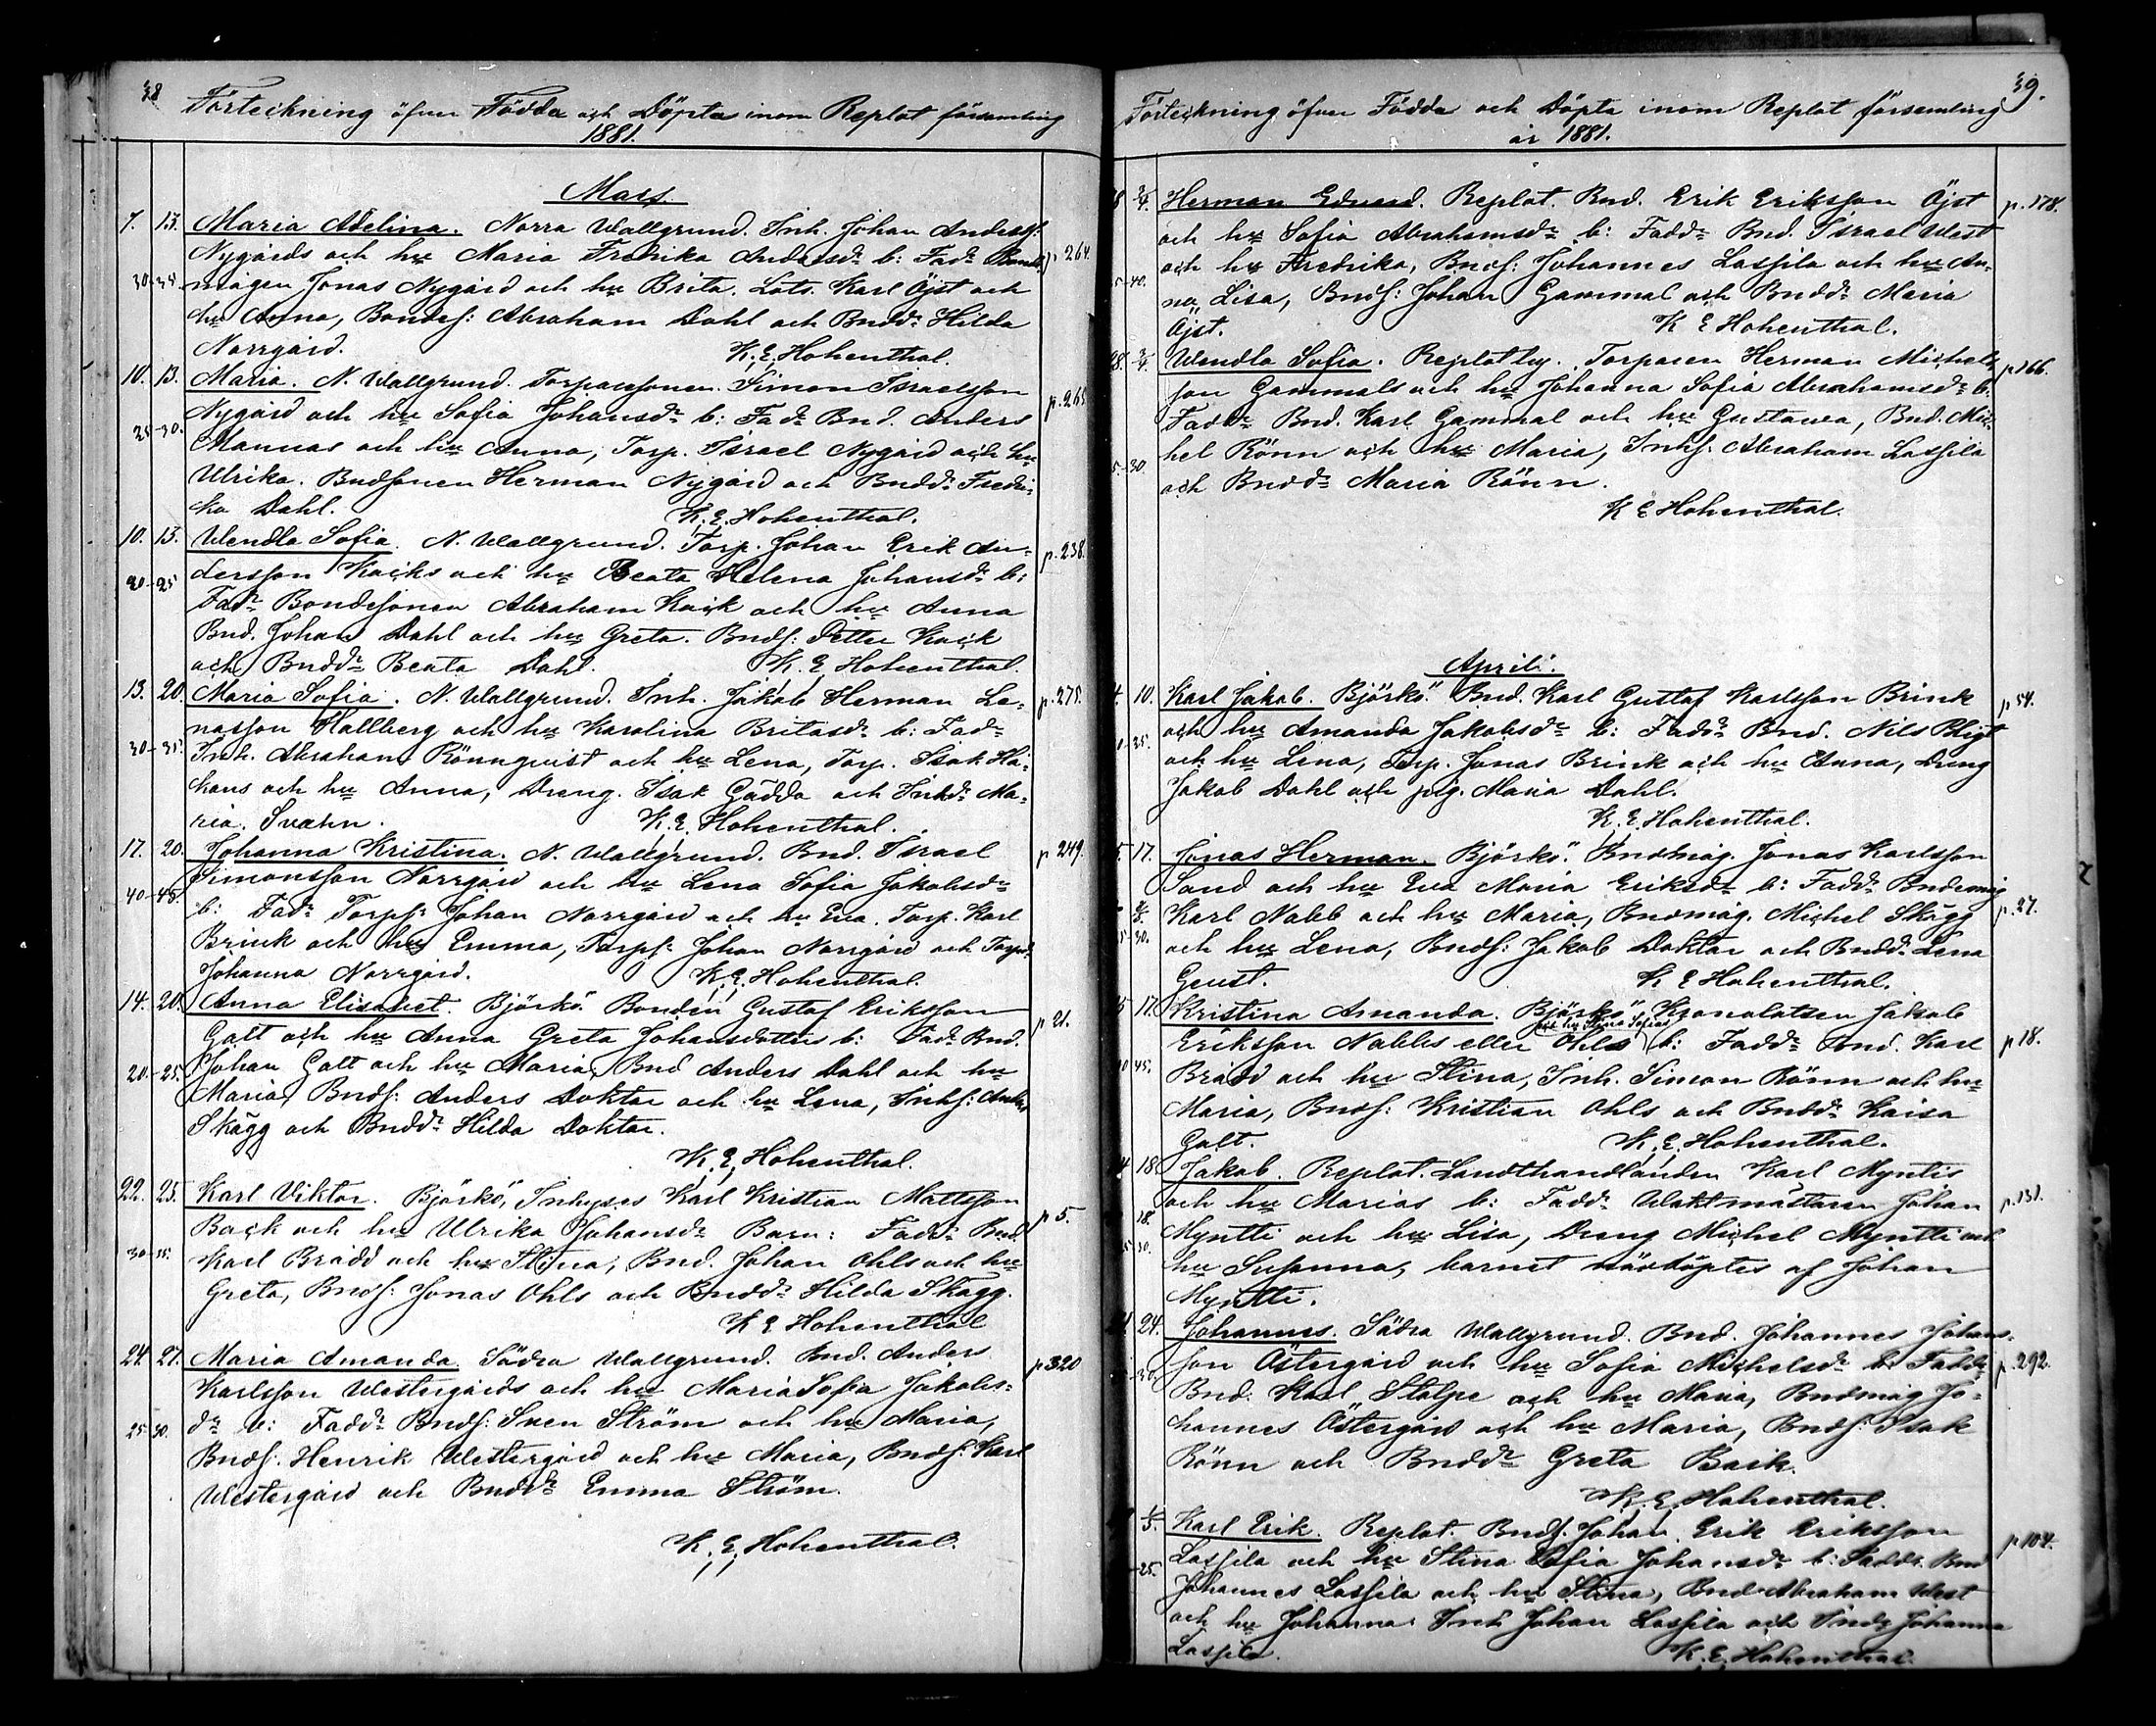 38
Förteckning öfver Födda och Döpta inom Replot församling
1881.
Mars.
7. 13. Maria Adelina. Norra Wallgrund. Inh. Johan Anderss:
Nygårds och hu Maria Fredrika Andersdr b: Fadr Bonde p. 264.
30-35 mågen Jonas Nygård och hu Brita. Lots. Karl Öjst och
hu Anna, Bondes: Abraham Dahl och Bnddr Hilda
Norrgård. K. E. Hohenthal.
10. 13. Maria. N. Wallgrund. Torparesonen Simon Israelsson
Nygård och hu Sofia Johansdr b: Fadr Bnd. Anders p. 265
25-30. Mannas och hu Anna, Torp. Israel Nygård och hu
Ulrika. Bndsonen Herman Nygård och Bnddr Fredri-
ka Dahl. K. E. Hohenthal.
10. 13. Wendla Sofia. N. Wallgrund. Torp. Johan Erik An-
dersson Kacks och hu Beata Helena Johansdr b: p. 238.
20-25 Fadr Bondesonen Abraham Kack och hu Anna
Bnd. Johan Dahl och hu Greta. Bnds: Petter Kack
och Bnddr Beata Dahl. K. E. Hohenthal.
13. 20. Maria Sofia. N. Wallgrund. Inh. Jakob Herman Le- p. 275.
nasson Hallberg och hu Karolina Britasdr b: Fadr
30-35. Inh. Abraham Rönnqvist och hu Lena, Torp. Isak Hå-
kans och hu Anna, Dreng. Isak Gädda och Inhdr Ma-
ria Svahn. K. E. Hohenthal.
17. 20. Johanna Kristina. N. Wallgrund. Bnd. Israel p 249.
Simonsson Norrgård och hu Lena Sofia Jakobsdr
40-45. b: Fadr Torps: Johan Norrgård och hu Eva. Torp. Karl
Brink och hu Emma, Torps: Johan Norrgård och Torpd.
Johanna Norrgård. K. E. Hohenthal.
14. 20. Anna Elisabet. Björkö. Bonden Gustaf Eriksson p 21.
Galt och hu Anna Greta Johansdotters b: Fadr Bnd.
20-25. Johan Galt och hu Maria, Bnd Anders Dahl och hu
Maria, Bnds: Anders Doktar och hu Lena, Inhs: Anders
Skägg och Bnddr Hilda Doktar.
K. E. Hohenthal.
22. 25. Karl Viktor. Björkö, Inhyses Karl Kristian Mattsson
Back och hu Ulrika Johansdr Barn: Faddr Bnd. p 5.
30-35. Karl Bradd och hu Stina, Bnd. Johan Ohls och hu
Greta, Bnds: Jonas Ohls och Bnddr Hilda Skägg.
K E Hohenthal
24. 27. Maria Amanda. Södra Wallgrund. Bnd. Anders p 320
Karlsson Westergårds och hu Maria Sofia Jakobs-
25-30. dr b: Faddr Bnds: Sven Ström och hu Maria,
Bnds: Henrik Westergård och hu Maria, Bnds: Karl
Westergård och Bnddr Emma Ström.
K. E. Hohenthal.
39.
Förteckning öfver Födda och Döpta inom Replot församling
år 1881.
8 3/4. Herman Edvard. Replot. Bnd. Erik Eriksson Öjst p. 178.
och hu Sofia Abrahamsdr b: Faddr Bnd. Israel West
5-40. och hu Fredrika, Bnds: Johannes Lassila och hu An-
na Lisa, Bnds: Johan Gammal och Bnddr Maria
Öjst. K E Hohenthal.
28. 3/4 Wendla Sofia. Replotby. Torparen Herman Michels- p. 166.
son Gammals och hu Johanna Sofia Abrahamsdr b:
Faddr Bnd. Karl Gammal och hu Gustava, Bnd. Mic-
5-30 hel Rönn och hu Maria, Inhs: Abraham Lassila
och Bnddr Maria Rönn.
K E Hohenthal.
April.
4. 10. Karl Jakob. Björkö. Bnd. Karl Gustaf Karlsson Brink p 54.
35. och hu Amanda Jakobsdr b: Faddr Bnd. Nils Pligt
och hu Lena, Torp. Jonas Brink och hu Anna, Dreng
Jakob Dahl och pig. Maria Dahl.
K. E. Hohenthal.
5. 17. Jonas Herman. Björkö. Bndmåg. Jonas Karlsson
Sand och hu Eva Maria Eriksdr b: Faddr Bndemåg
Karl Nabb och hu Maria, Bndmåg. Michel Skägg p. 27.
5-30. och hu Lena, Bnds: Jakob Doktar och Bnddr Lena
Geust. K E Hohenthal.
5 17. Kristina Amanda. Björkö Kronolotsen Jakob
och hu Stina Sofias
Eriksson Nabbs eller Ohls b: Faddr Bnd. Karl p 18.
45. Bradd och hu Stina, Inh. Simon Rönn och hu
Maria, Bnds: Kristian Ohls och Bnddr Kaisa
Galt. K. E. Hohenthal.
4 18 Jakob. Replot. Landthandlanden Karl Myntis
18. och hu Marias b: Faddr Waktmästaren Johan p. 131.
30. Myntti och hu Lisa, Dreng Michel Myntti och
hu Susanna, barnet nöddöptes af Johan
Myntti.
21. 24. Johannes. Södra Wallgrund. Bnd. Johannes Johans-
30. son Östergård och hu Sofia Michelsdr b: Faddr p. 292.
Bnd: Karl Stolpe och hu Maria, Bndmåg Jo-
hannes Östergård och hu Maria, Bnds: Isak
Rönn och Bnddr Greta Back.
K. E. Hohenthal.
1/5. Karl Erik. Replot. Bnds. Johan Erik Eriksson p 104.
25. Lassila och hu Stina Sofia Johansdr b: Faddr. Bnd
Johannes Lassila och hu Stina, Bnd Abraham West
och hu Johanna Inh Johan Lassila och Indr Johanna
Lassila. K. E. Hohenthal.